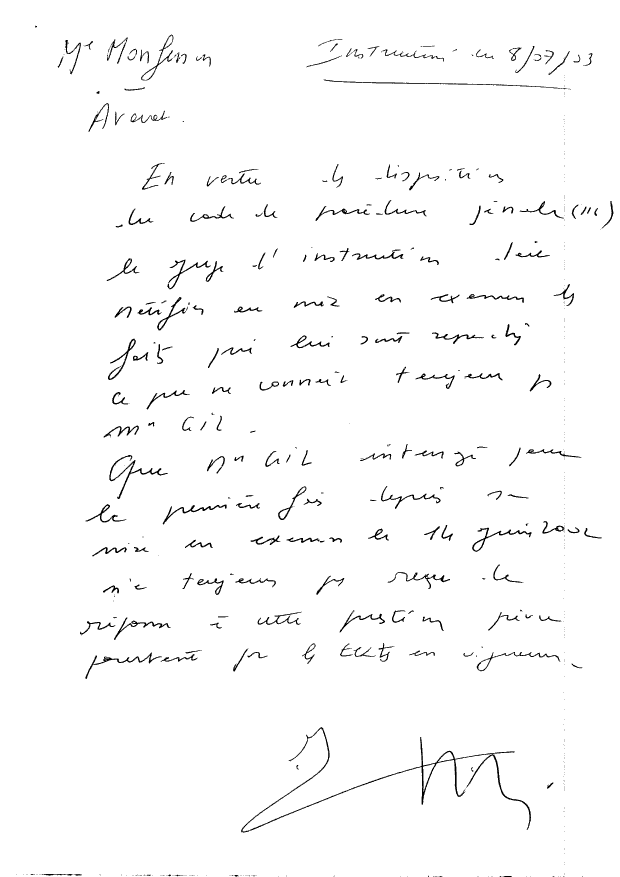 Me Monferran Instruction du 8/07/03
Avocat.
En vertu des dispositions
du code de procédure pénale (III)
le juge d'instruction doit
notifier au mis en examen les
faits qui lui sont reprochés
ce que ne connaît toujours pas
Mr GIL.
Que Mr GIL interrogé pour
la première fois depuis sa
mise en examen le 14 juin 2002
n'a toujours pas reçu de
réponse à cette question prévue
pourtant par les textes en vigueur.